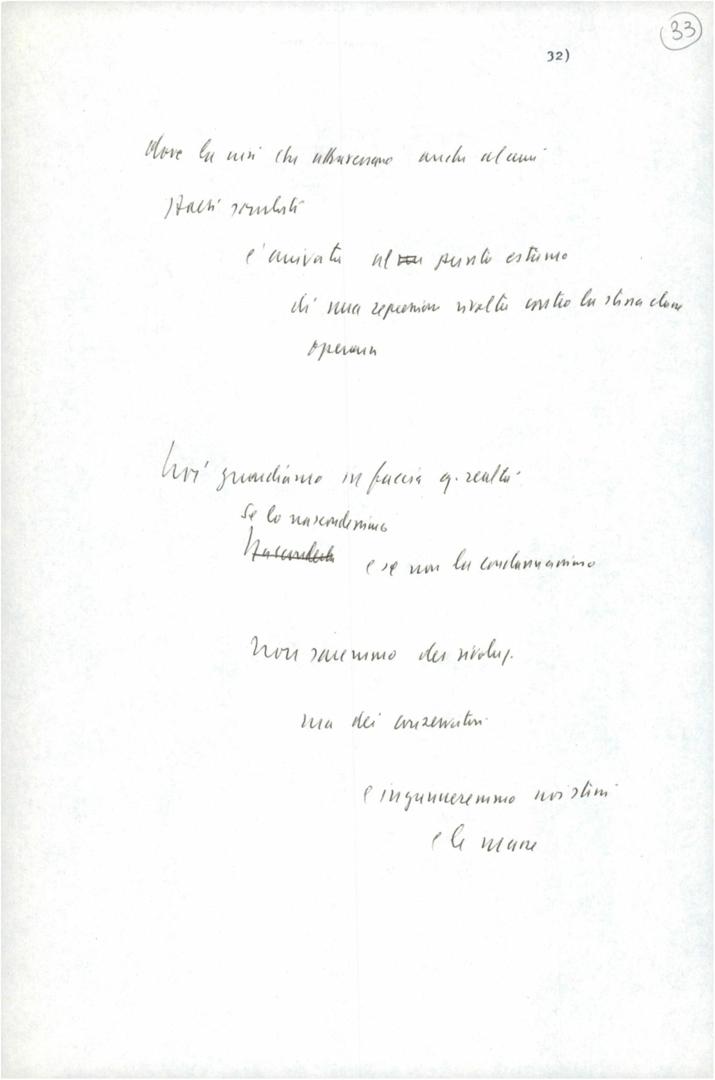 33
32)
dove la crisi che attraversano anche alcuni
Stati socialisti
è arrivata al punto estremo
di una repressione rivolta contro la stessa classe
operaia
Noi guardiamo in faccia q. realtà
Se lo nascondessimo
e se non la condannassimo
non saremmo dei rivoluz.
ma dei conservatori
e inganneremmo noi stessi
e le masse